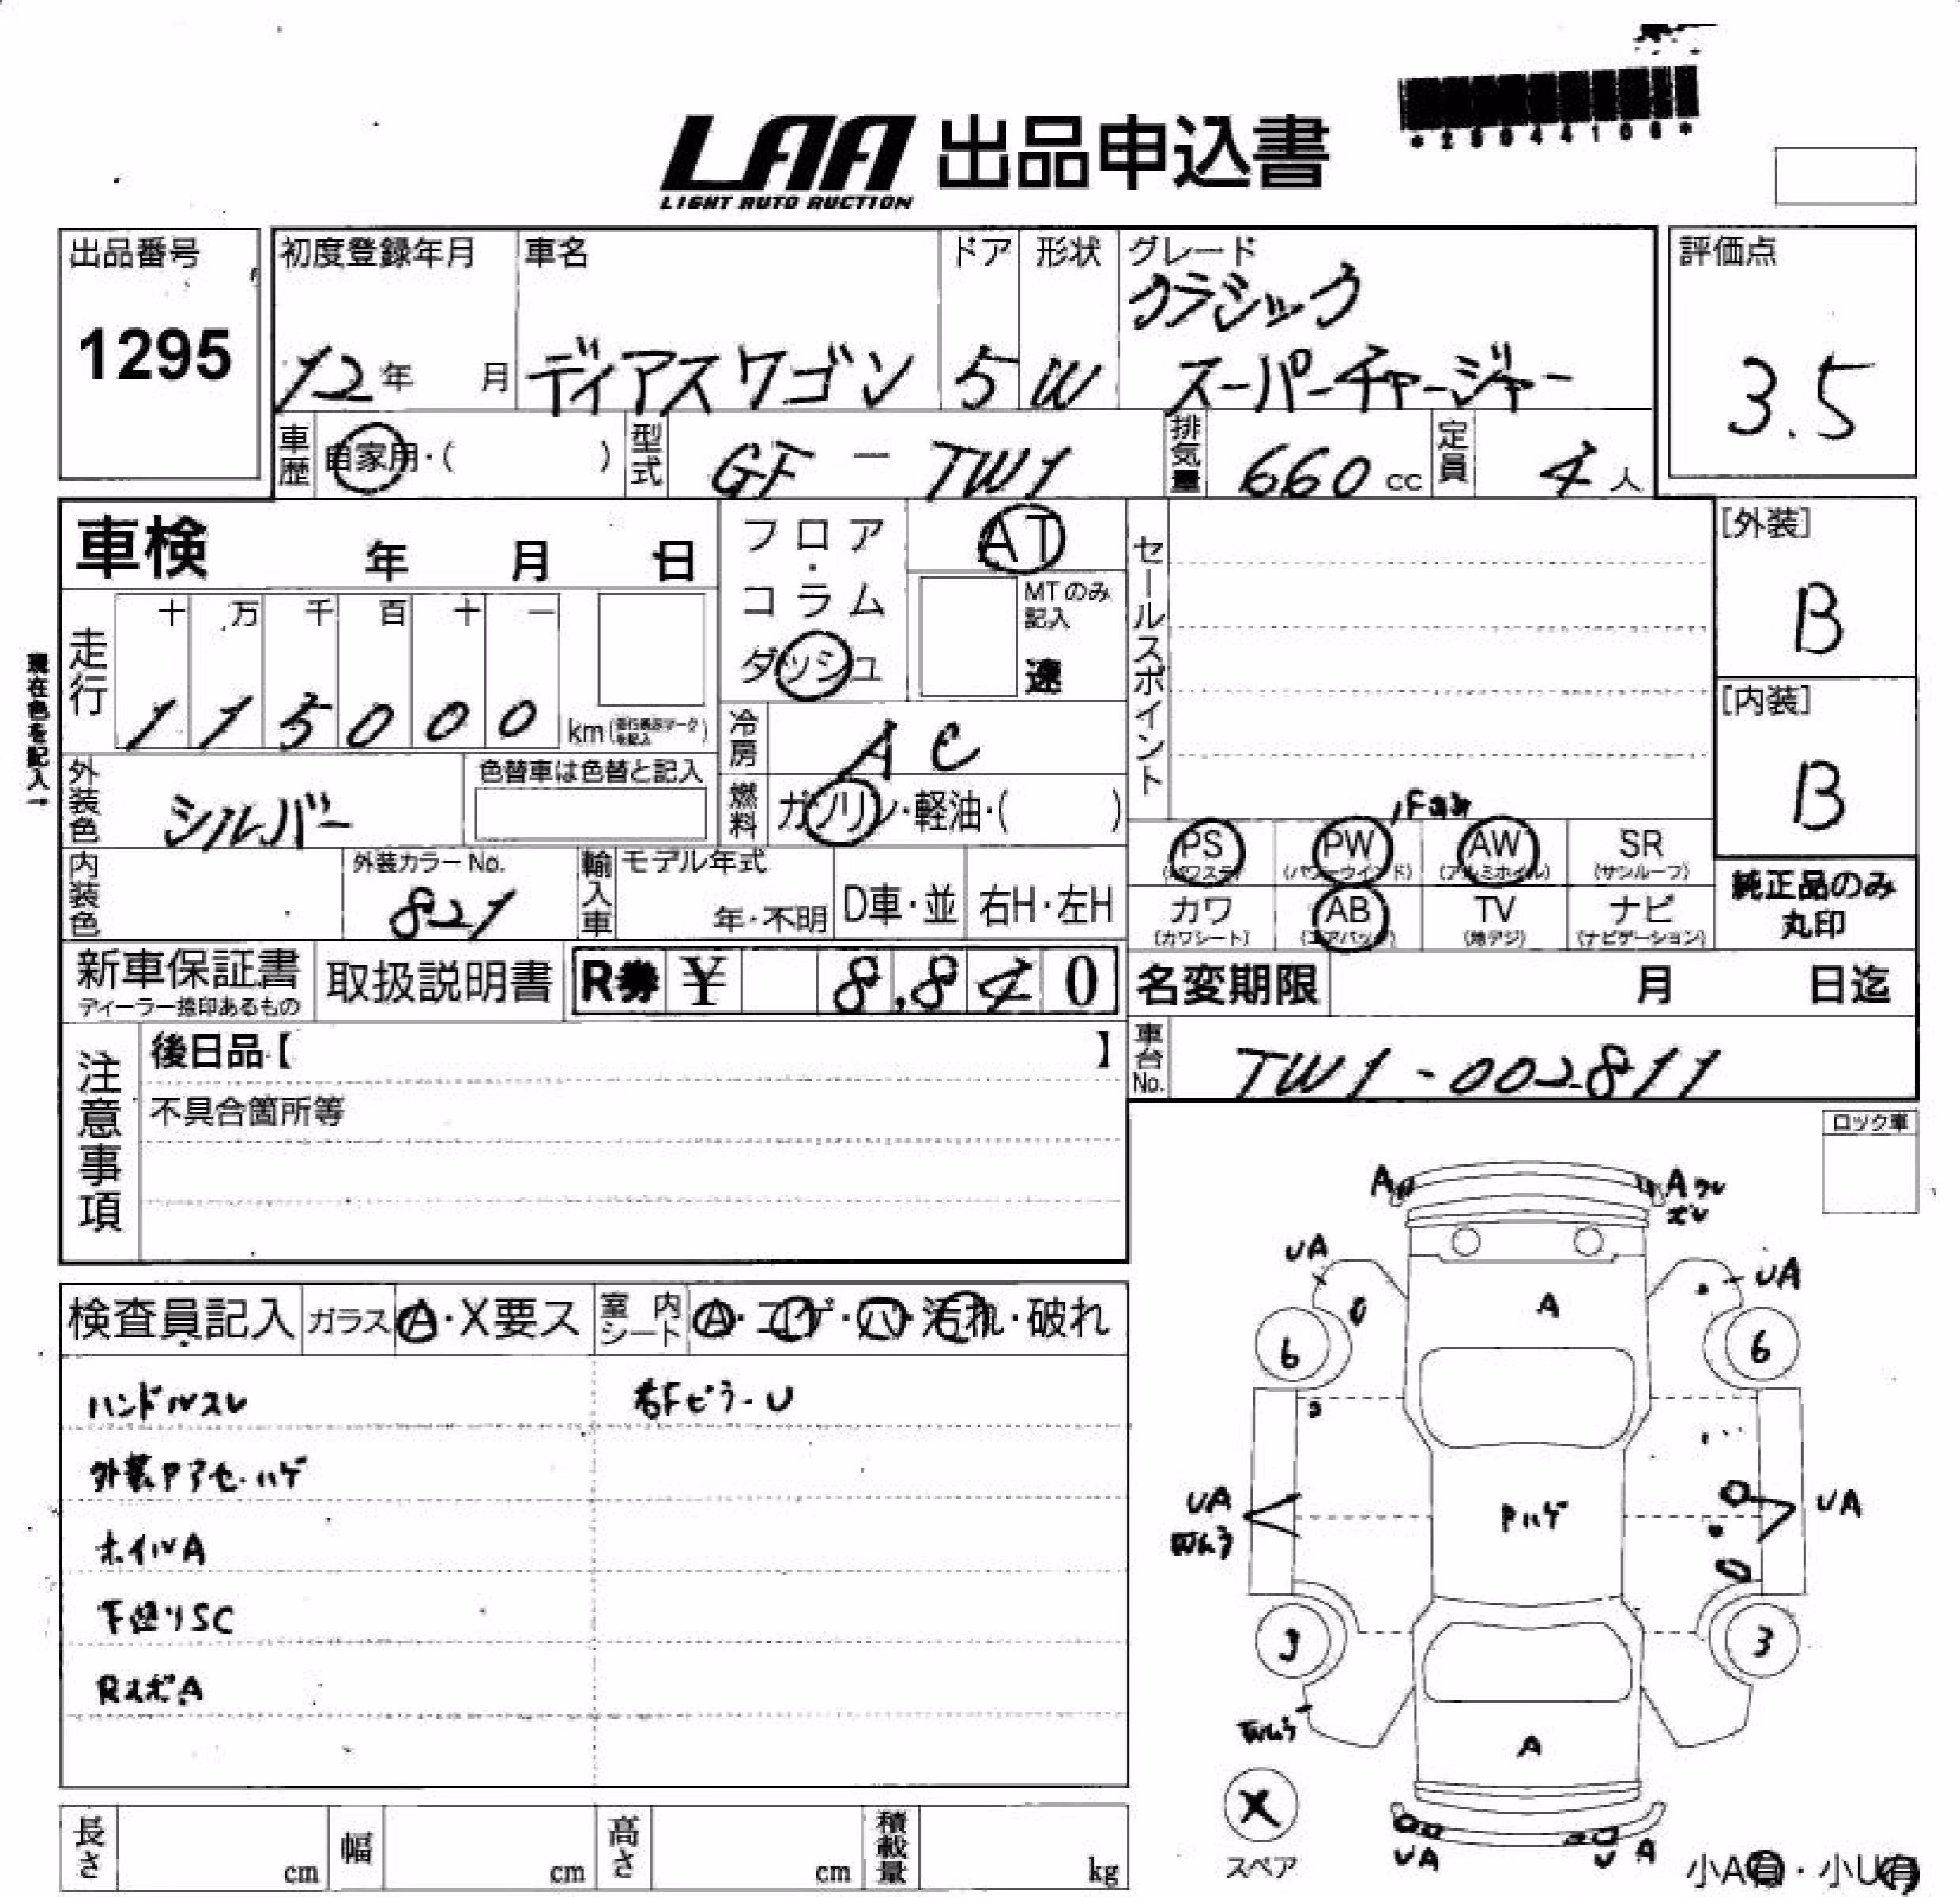 LAA 出品申込書
LIGHT AUTO AUCTION
*25044106*
出品番号
1295
初度登録年月
12年 月
車名
ディアスワゴン
ドア
5
形状
W
グレード
クラシック
スーパーチャージャー
評価点
3.5
車歴
自家用・( )
型式
GF - TW1
排気量
660 cc
定員
4人
車検 年 月 日
フロア・コラム
ダッシュ
AT
MTのみ記入
速
セールスポイント
[外装]
B
[内装]
B
走行
十 万 千 百 十 一
1 1 5 0 0 0 km
現在色を記入→
冷房
AC
外装色
シルバー
色替車は色替と記入
燃料
ガソリン・軽油・( )
内装色
外装カラーNo.
821
輸入車
モデル年式
年・不明
D車・並
右H・左H
PS
(パワステ)
PW
(パワーウインド)
AW
(アルミホイル)
SR
(サンルーフ)
カワ
(カワシート)
AB
(エアバッグ)
TV
(地デジ)
ナビ
(ナビゲーション)
純正品のみ
丸印
新車保証書
ディーラー捺印あるもの
取扱説明書
R券 ¥ 8,840
名変期限 月 日迄
車台No.
TW1-002811
注意事項
後日品【 】
不具合箇所等
ロック車
検査員記入
ガラス
A・X要ス
室内シート
A・コゲ・穴・汚れ・破れ
ハンドルスレ
右Fピラ-U
外装Pアセ・ハゲ
ホイルA
下廻りSC
RスポA
A
A ワレ
ズレ
UA
UA
A
6
6
UA
UA
Pハゲ
3
3
A
X
スペア
UA
U A
小A有・小U有
長さ cm
幅 cm
高さ cm
積載量 kg